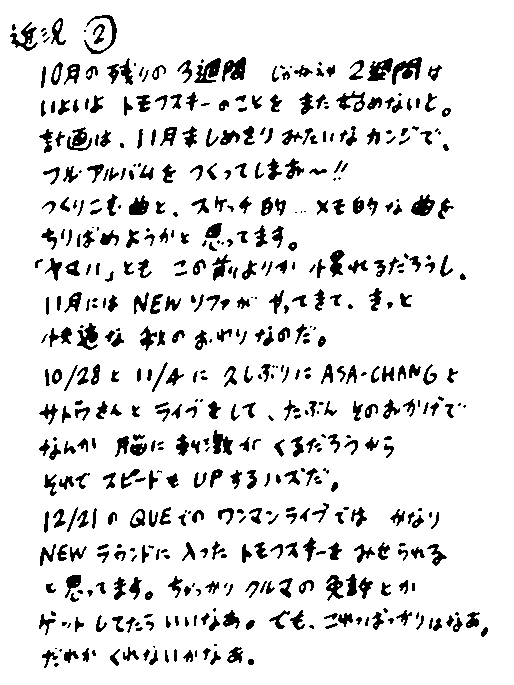 近況 ②
10月の残りの3週間 じゃかえか 2週間は
いよいよ トモフスキーのことを また始めないと。
計画は、11月末しめきりみたいなカンジで、
フルアルバムを つくってしまお〜!!
つくりこむ曲と、スケッチ的…メモ的な曲を
ちりばめようかと思ってます。
「ヤマハ」とも この前よりか慣れるだろうし、
11月には NEWソファが やってきて、きっと
快適な 秋のおわりなのだ。
10/28と11/4に 久しぶりに ASA-CHANGと
サトウさんと ライブをして、たぶん そのおかげで
なんか 脳に刺激が くるだろうから
それで スピードも UPするハズだ。
12/21の QUEでの ワンマンライブでは かなり
NEWラウンドに入った トモフスキーを みせられる
と思ってます。ちゃっかり クルマの 免許とか
ゲットしてたら いいなあ。でも、こればっかりはなあ。
だれか くれないかなぁ。